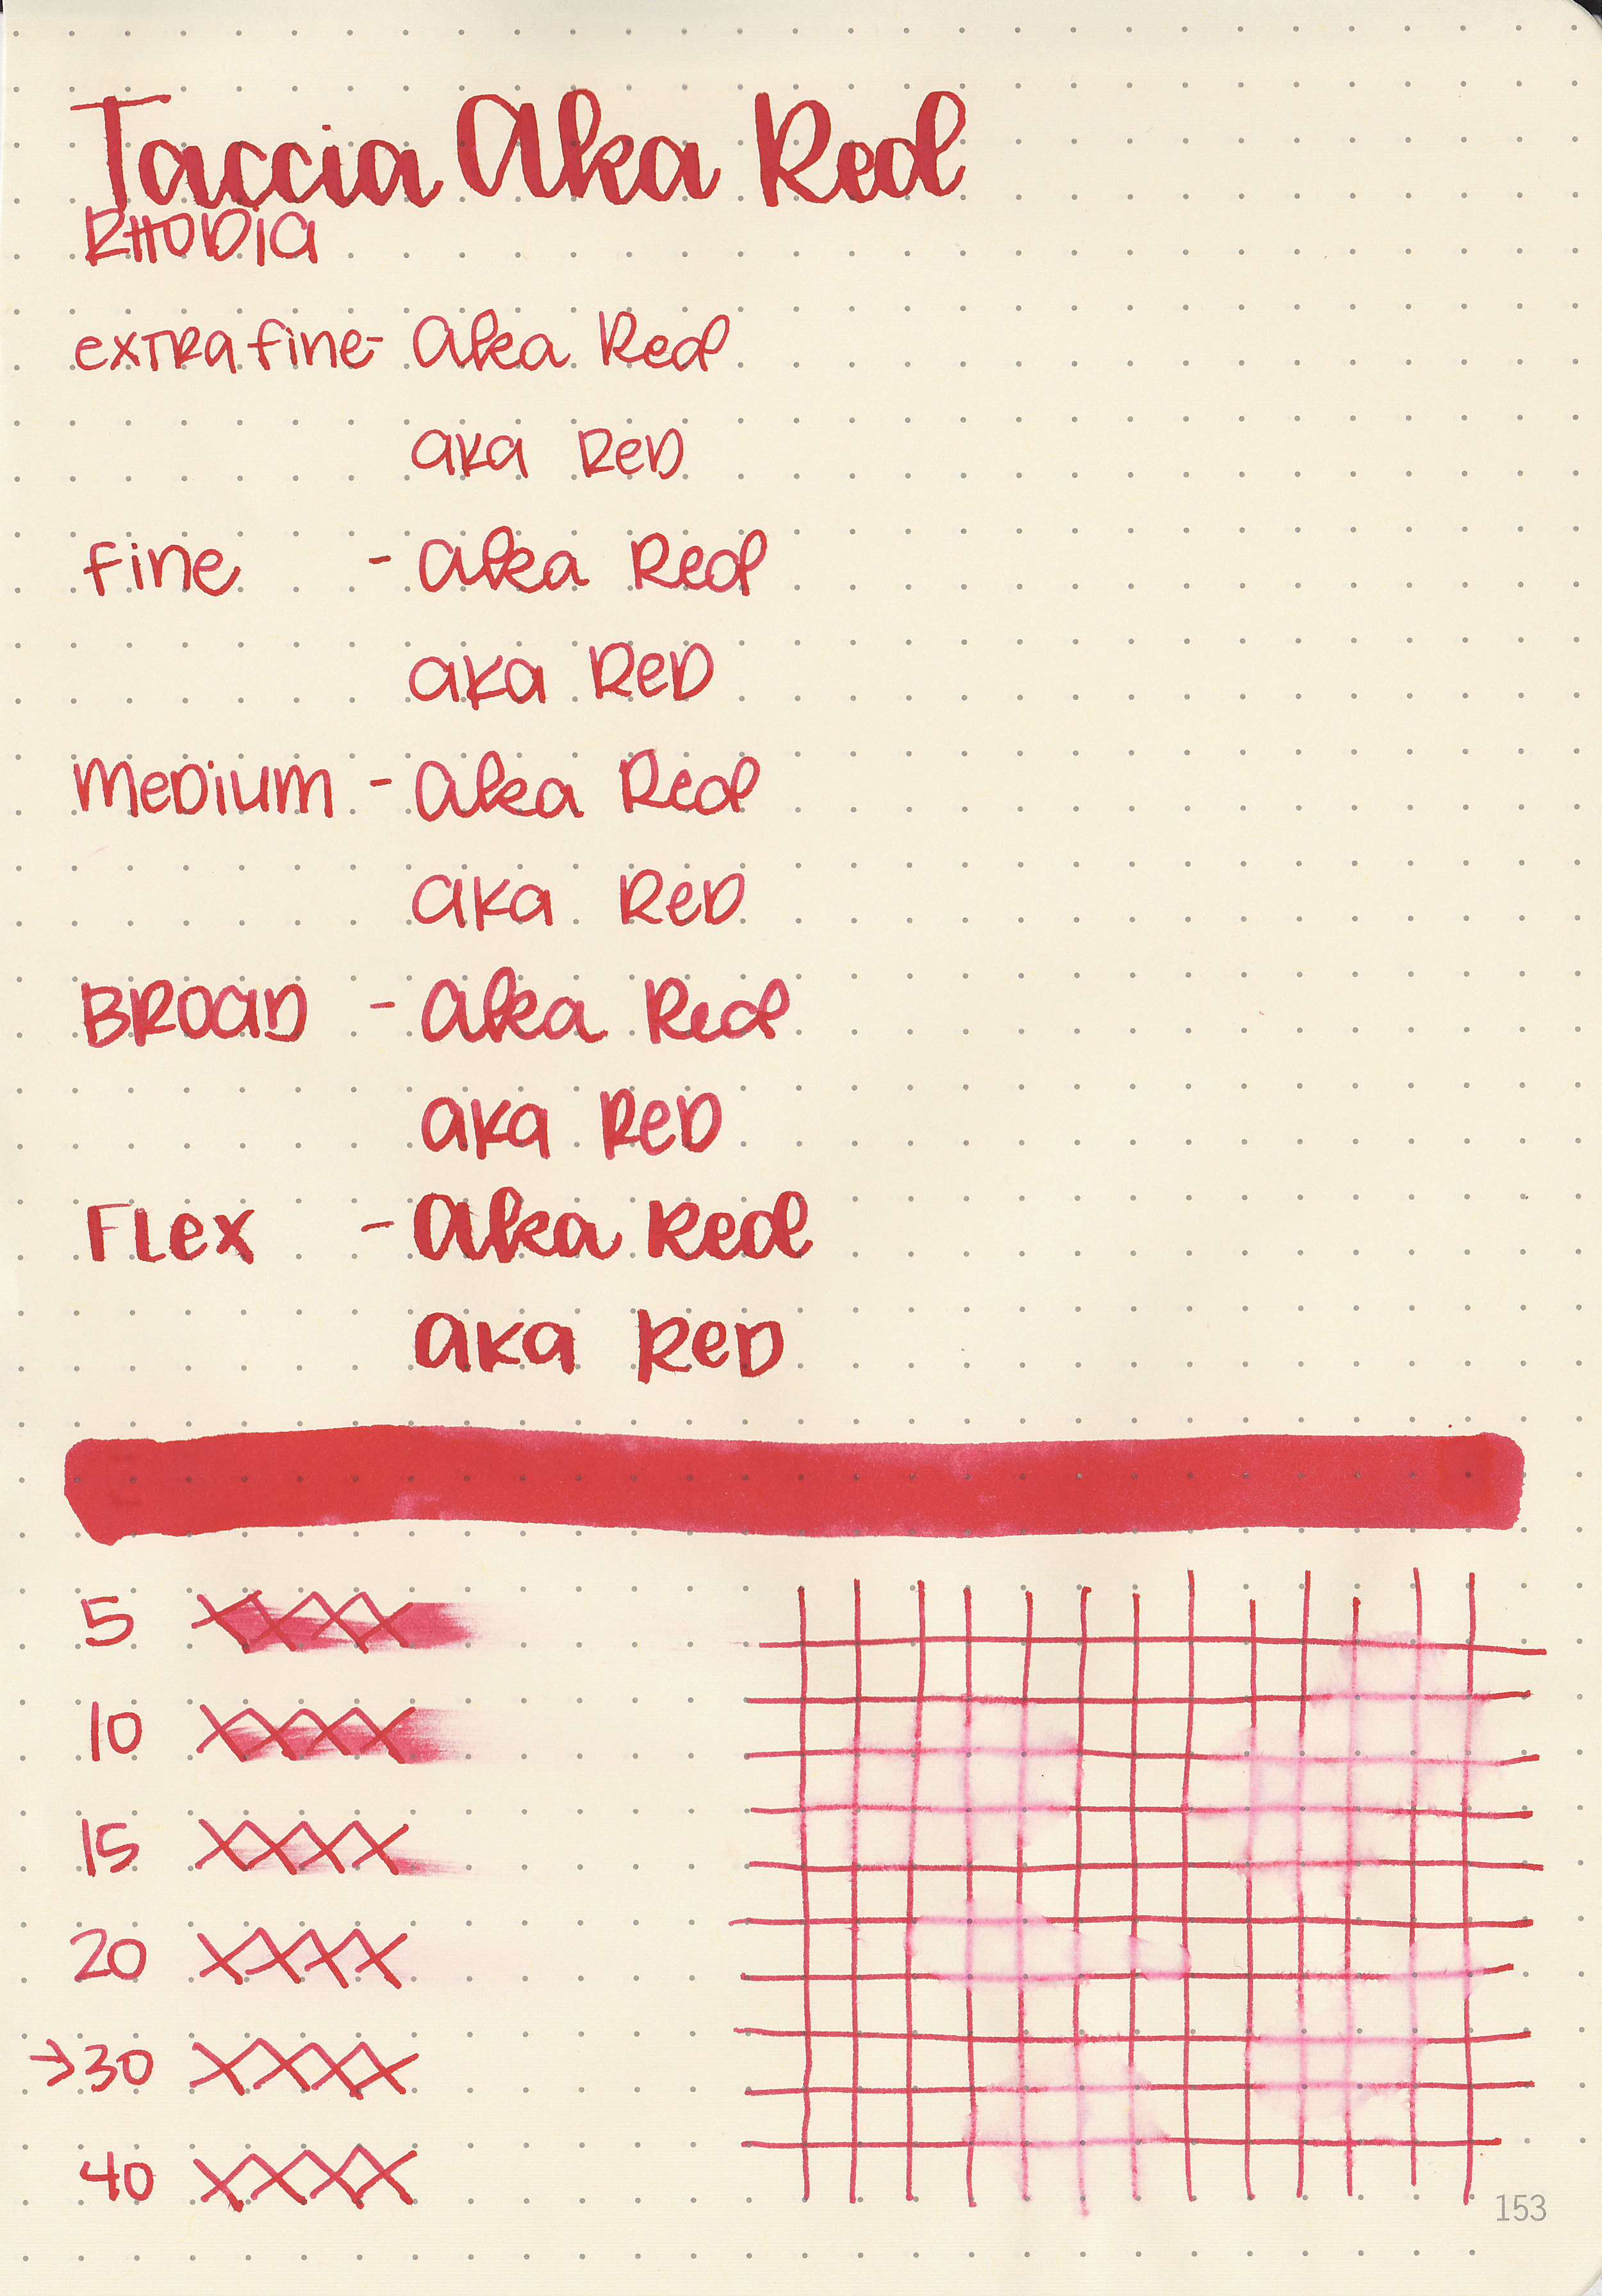 Taccia Aka Red
RHODIA
extra fine - Aka Red
aka Red
fine - Aka Red
aka Red
Medium - Aka Red
aka Red
BROAD - Aka Red
aka Red
FLex - Aka Red
aka Red
5 XXXX
10 XXXX
15 XXXX
20 XXXX
→30 XXXX
40 XXXX
153